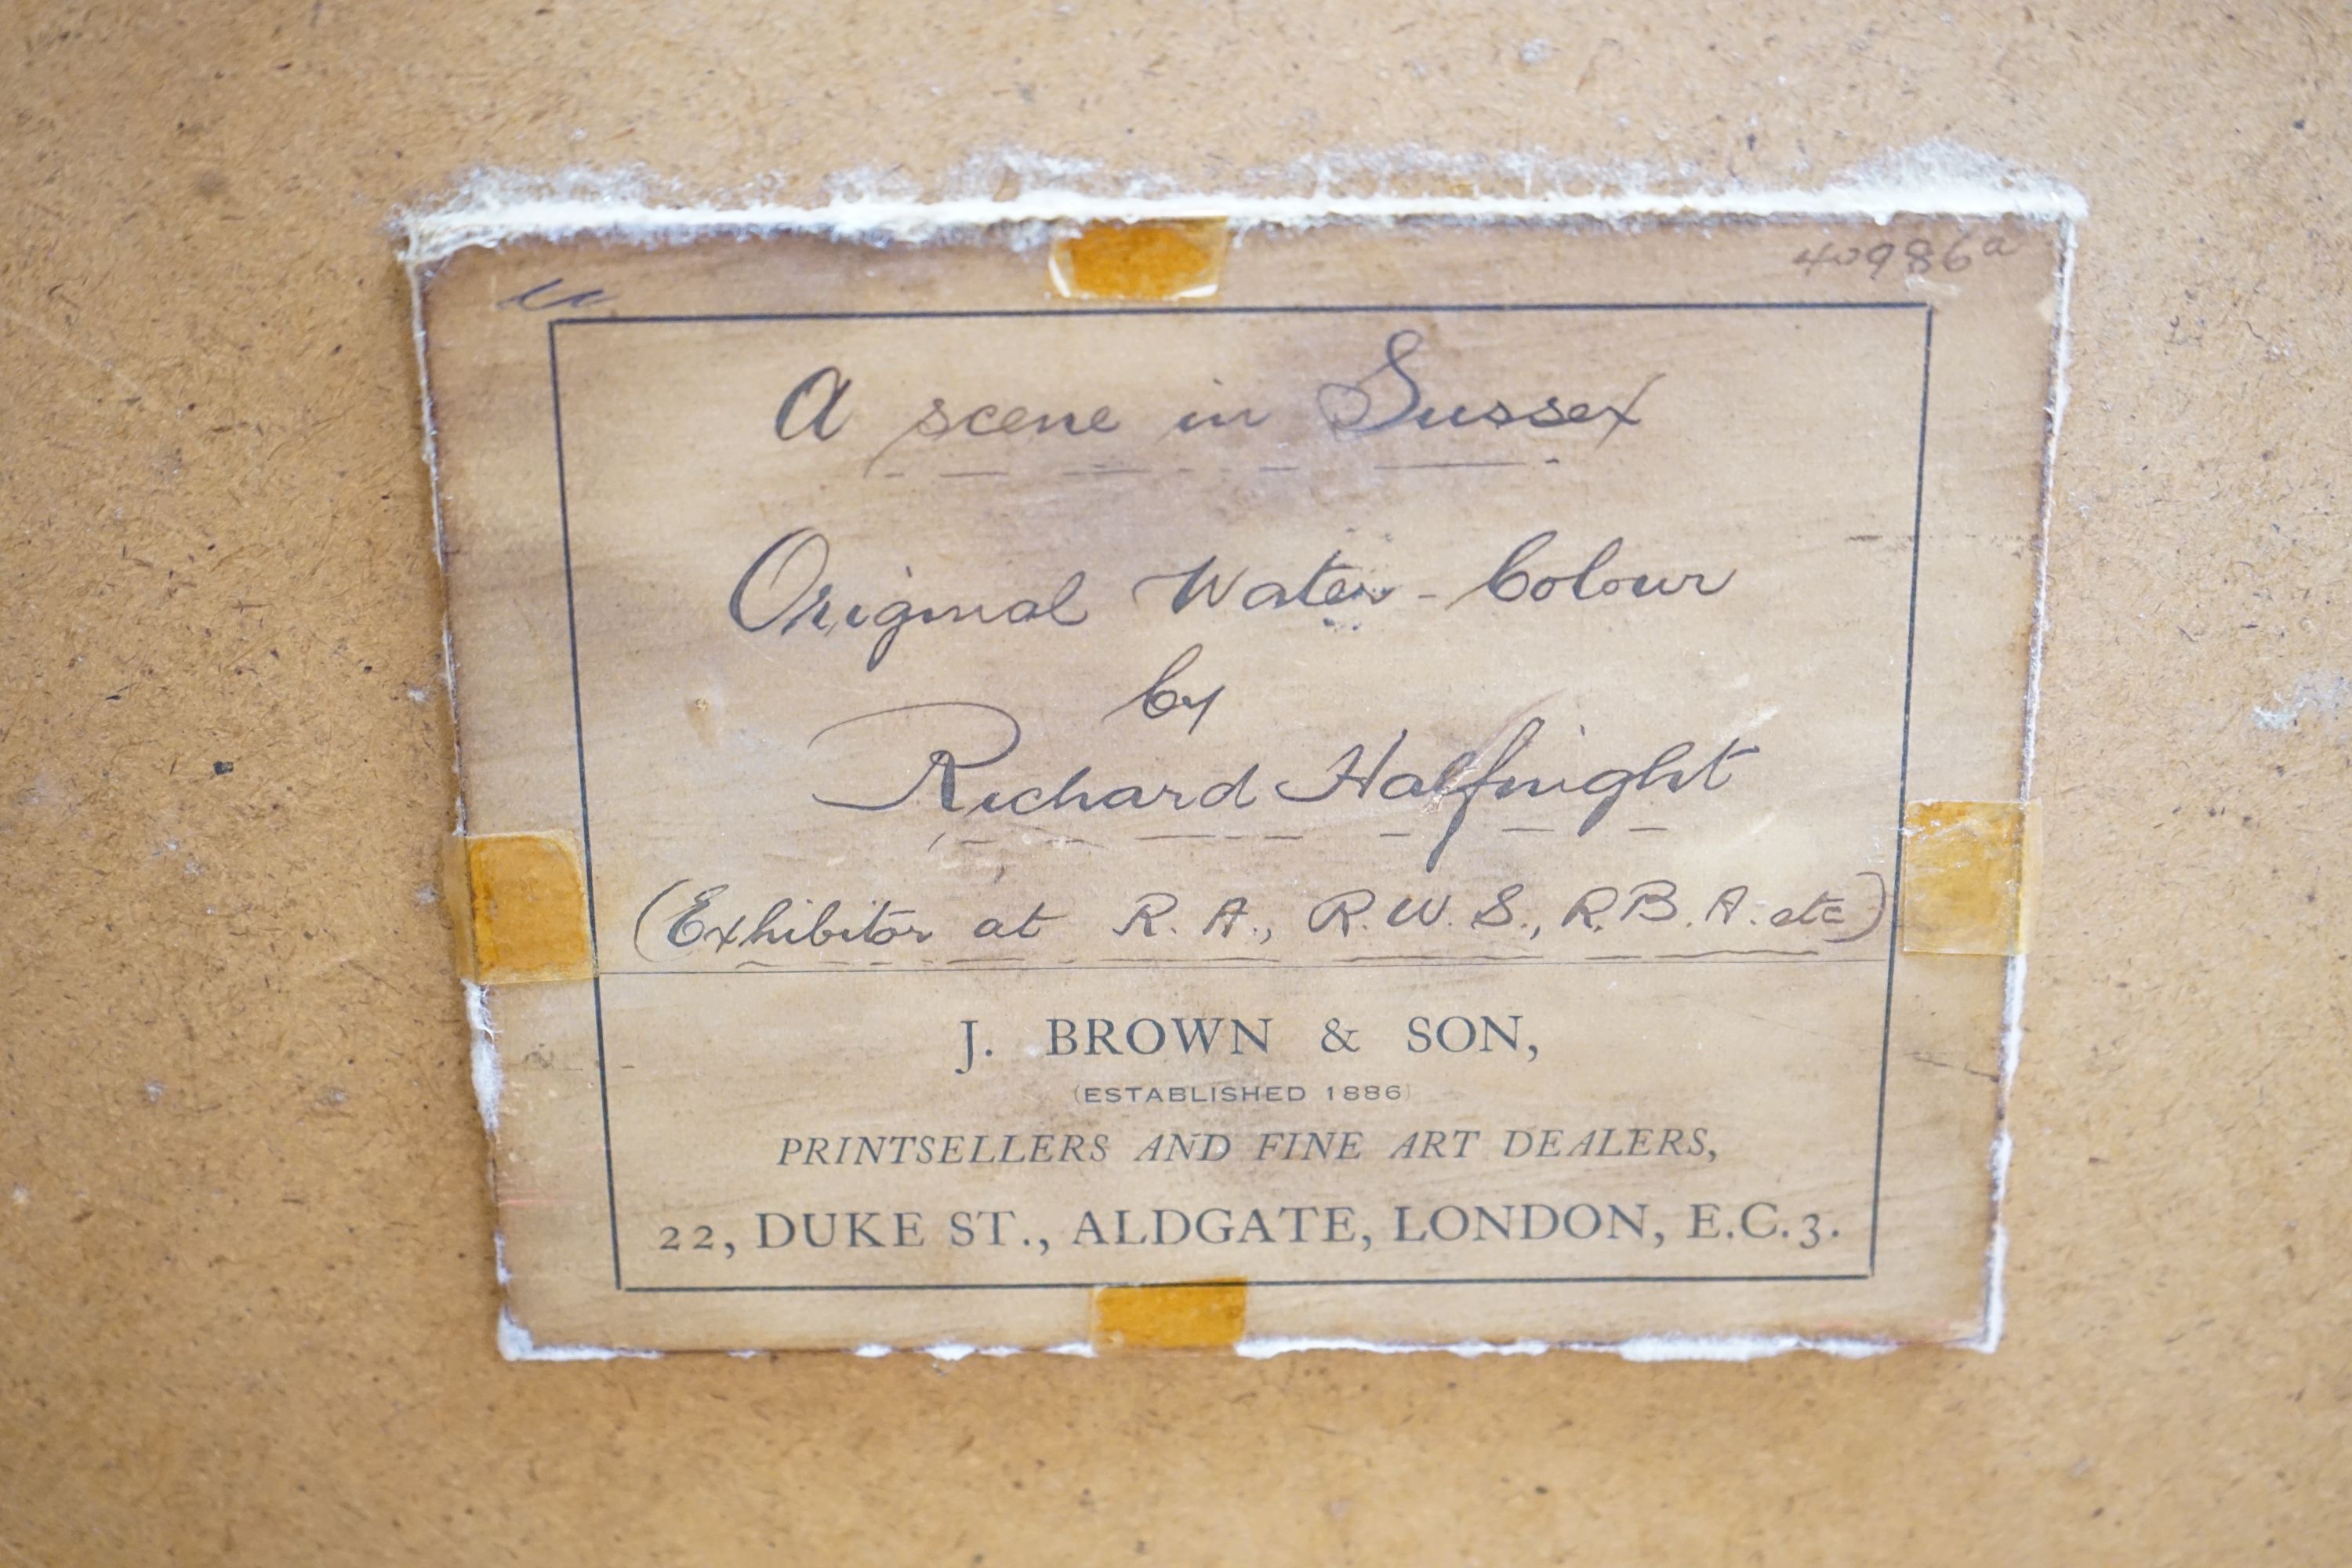 40986a
A scene in Sussex
Original Water-Colour
by
Richard Halfnight
(Exhibitor at R.A., R.W.S., R.B.A. etc)
J. BROWN & SON,
(ESTABLISHED 1886)
PRINTSELLERS AND FINE ART DEALERS,
22, DUKE ST., ALDGATE, LONDON, E.C.3.